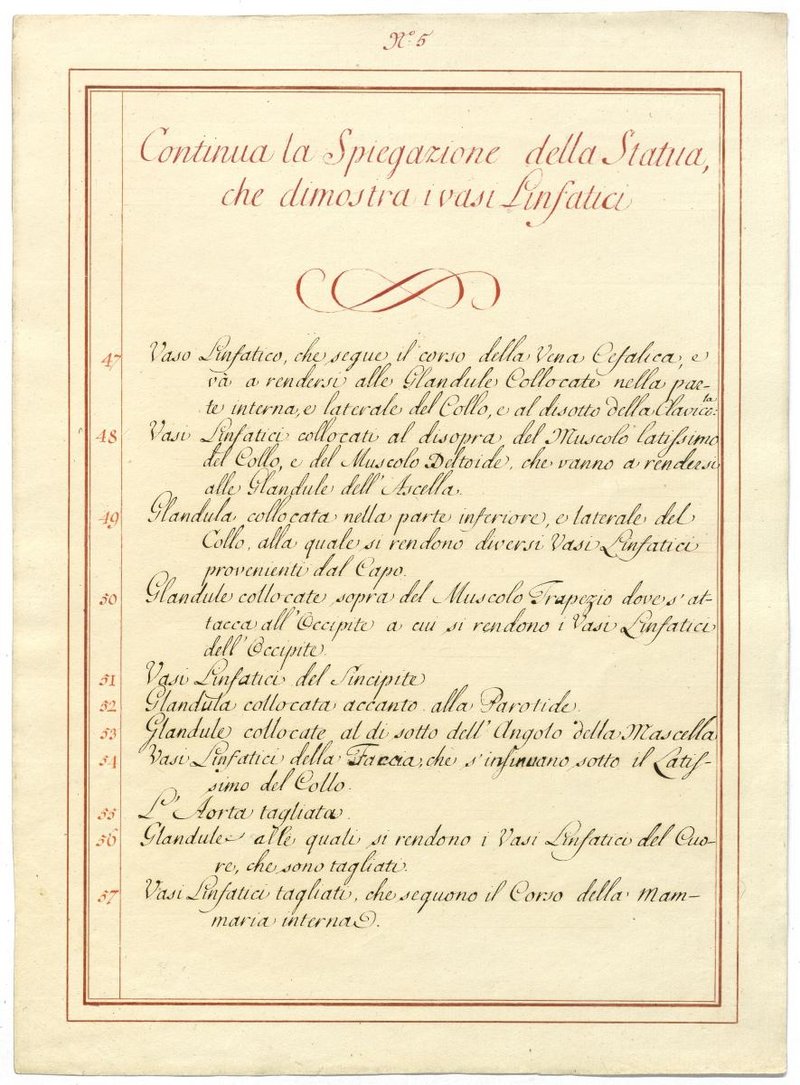 Nº 5
Continua la Spiegazione della Statua,
che dimostra i vasi Linfatici
47 Vaso Linfatico, che segue il corso della Vena Cefalica, e
và a rendersi alle Glandule Collocate nella par-
te interna, e laterale del Collo, e al disotto della Clavico:la
48 Vasi Linfatici collocati al disopra del Muscolo latiſsimo
del Collo, e del Muscolo Deltoide, che vanno a rendersi
alle Glandule dell'Ascella.
49 Glandula collocata nella parte inferiore, e laterale del
Collo, alla quale si rendono diversi Vasi Linfatici
provenienti dal Capo.
50 Glandule collocate sopra del Muscolo Trapezio dove s'at-
tacca all'Occipite a cui si rendono i Vasi Linfatici
dell'Occipite.
51 Vasi Linfatici del Sincipite
52 Glandula collocata accanto alla Parotide.
53 Glandule collocate al di sotto dell'Angolo della Mascella
54 Vasi Linfatici della Faccia, che s'insinuano sotto il Latiſ-
simo del Collo.
55 L'Aorta tagliata.
56 Glandule alle quali si rendono i Vasi Linfatici del Cuo-
re, che sono tagliati.
57 Vasi Linfatici tagliati, che seguono il Corso della Mam-
maria interna.